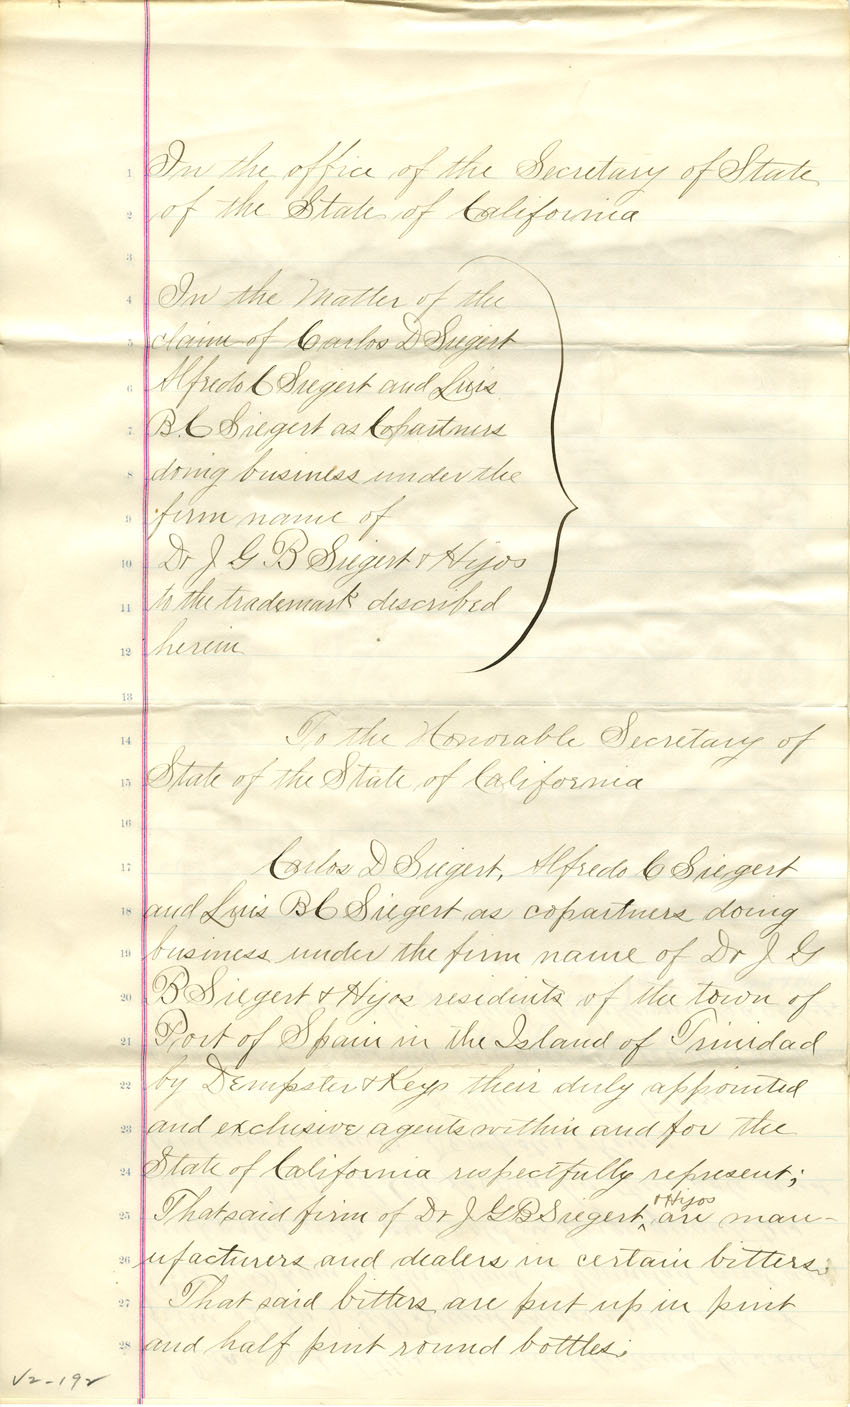 1 In the office of the Secretary of State
2 of the State of California
3
4 In the Matter of the
5 claim of Carlos D Siegert
6 Alfredo C Siegert and Luis
7 B. C Siegert as Copartners
8 doing business under the
9 firm name of
10 Dr J G B Siegert & Hijos
11 to the trademark described
12 herein
13
14 To the Honorable Secretary of
15 State of the State of California
16
17 Carlos D Siegert, Alfredo C Siegert
18 and Luis B C Siegert as copartners doing
19 business under the firm name of Dr J G
20 B Siegert & Hijos residents of the town of
21 Port of Spain in the Island of Trinidad
22 by Dempster & Keys their duly appointed
23 and exclusive agents within and for the
24 State of California respectfully represent;
25 That said firm of Dr J G B Siegert ^ & Hijos are man-
26 ufacturers and dealers in certain bitters;
27 That said bitters are put up in pint
28 and half pint round bottles;
V2-192